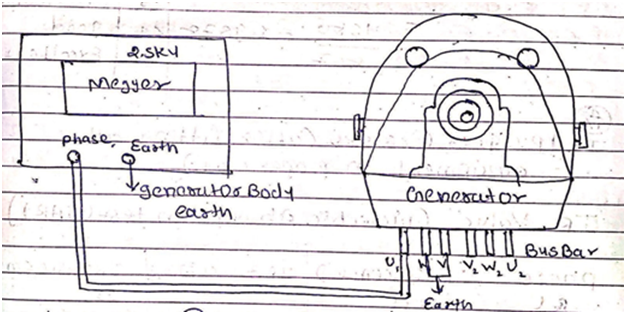 2.5KV
Megger
Phase
Earth
generator Body
earth
Generator
BusBar
U1 W V V2 W2 U2
Earth